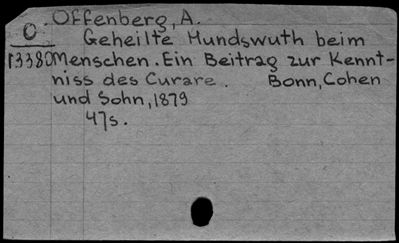 Offenberg, A.
O
Geheilte Hundswuth beim
13380 Menschen. Ein Beitrag zur Kennt-
niss des Curare. Bonn, Cohen
und Sohn, 1879
47s.